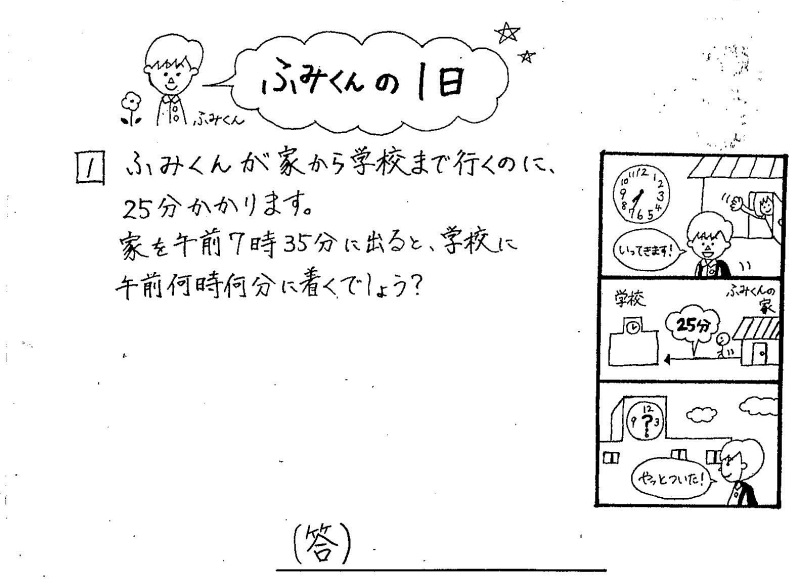 ふみくんの1日
ふみくん
1 ふみくんが家から学校まで行くのに、
25分かかります。
家を午前7時35分に出ると、学校に
午前何時何分に着くでしょう?
11 12 1
10 2
9 3
8 4
7 6 5
いってきます!
学校
ふみくんの
家
25分
12
9 ? 3
やっとついた!
(答)